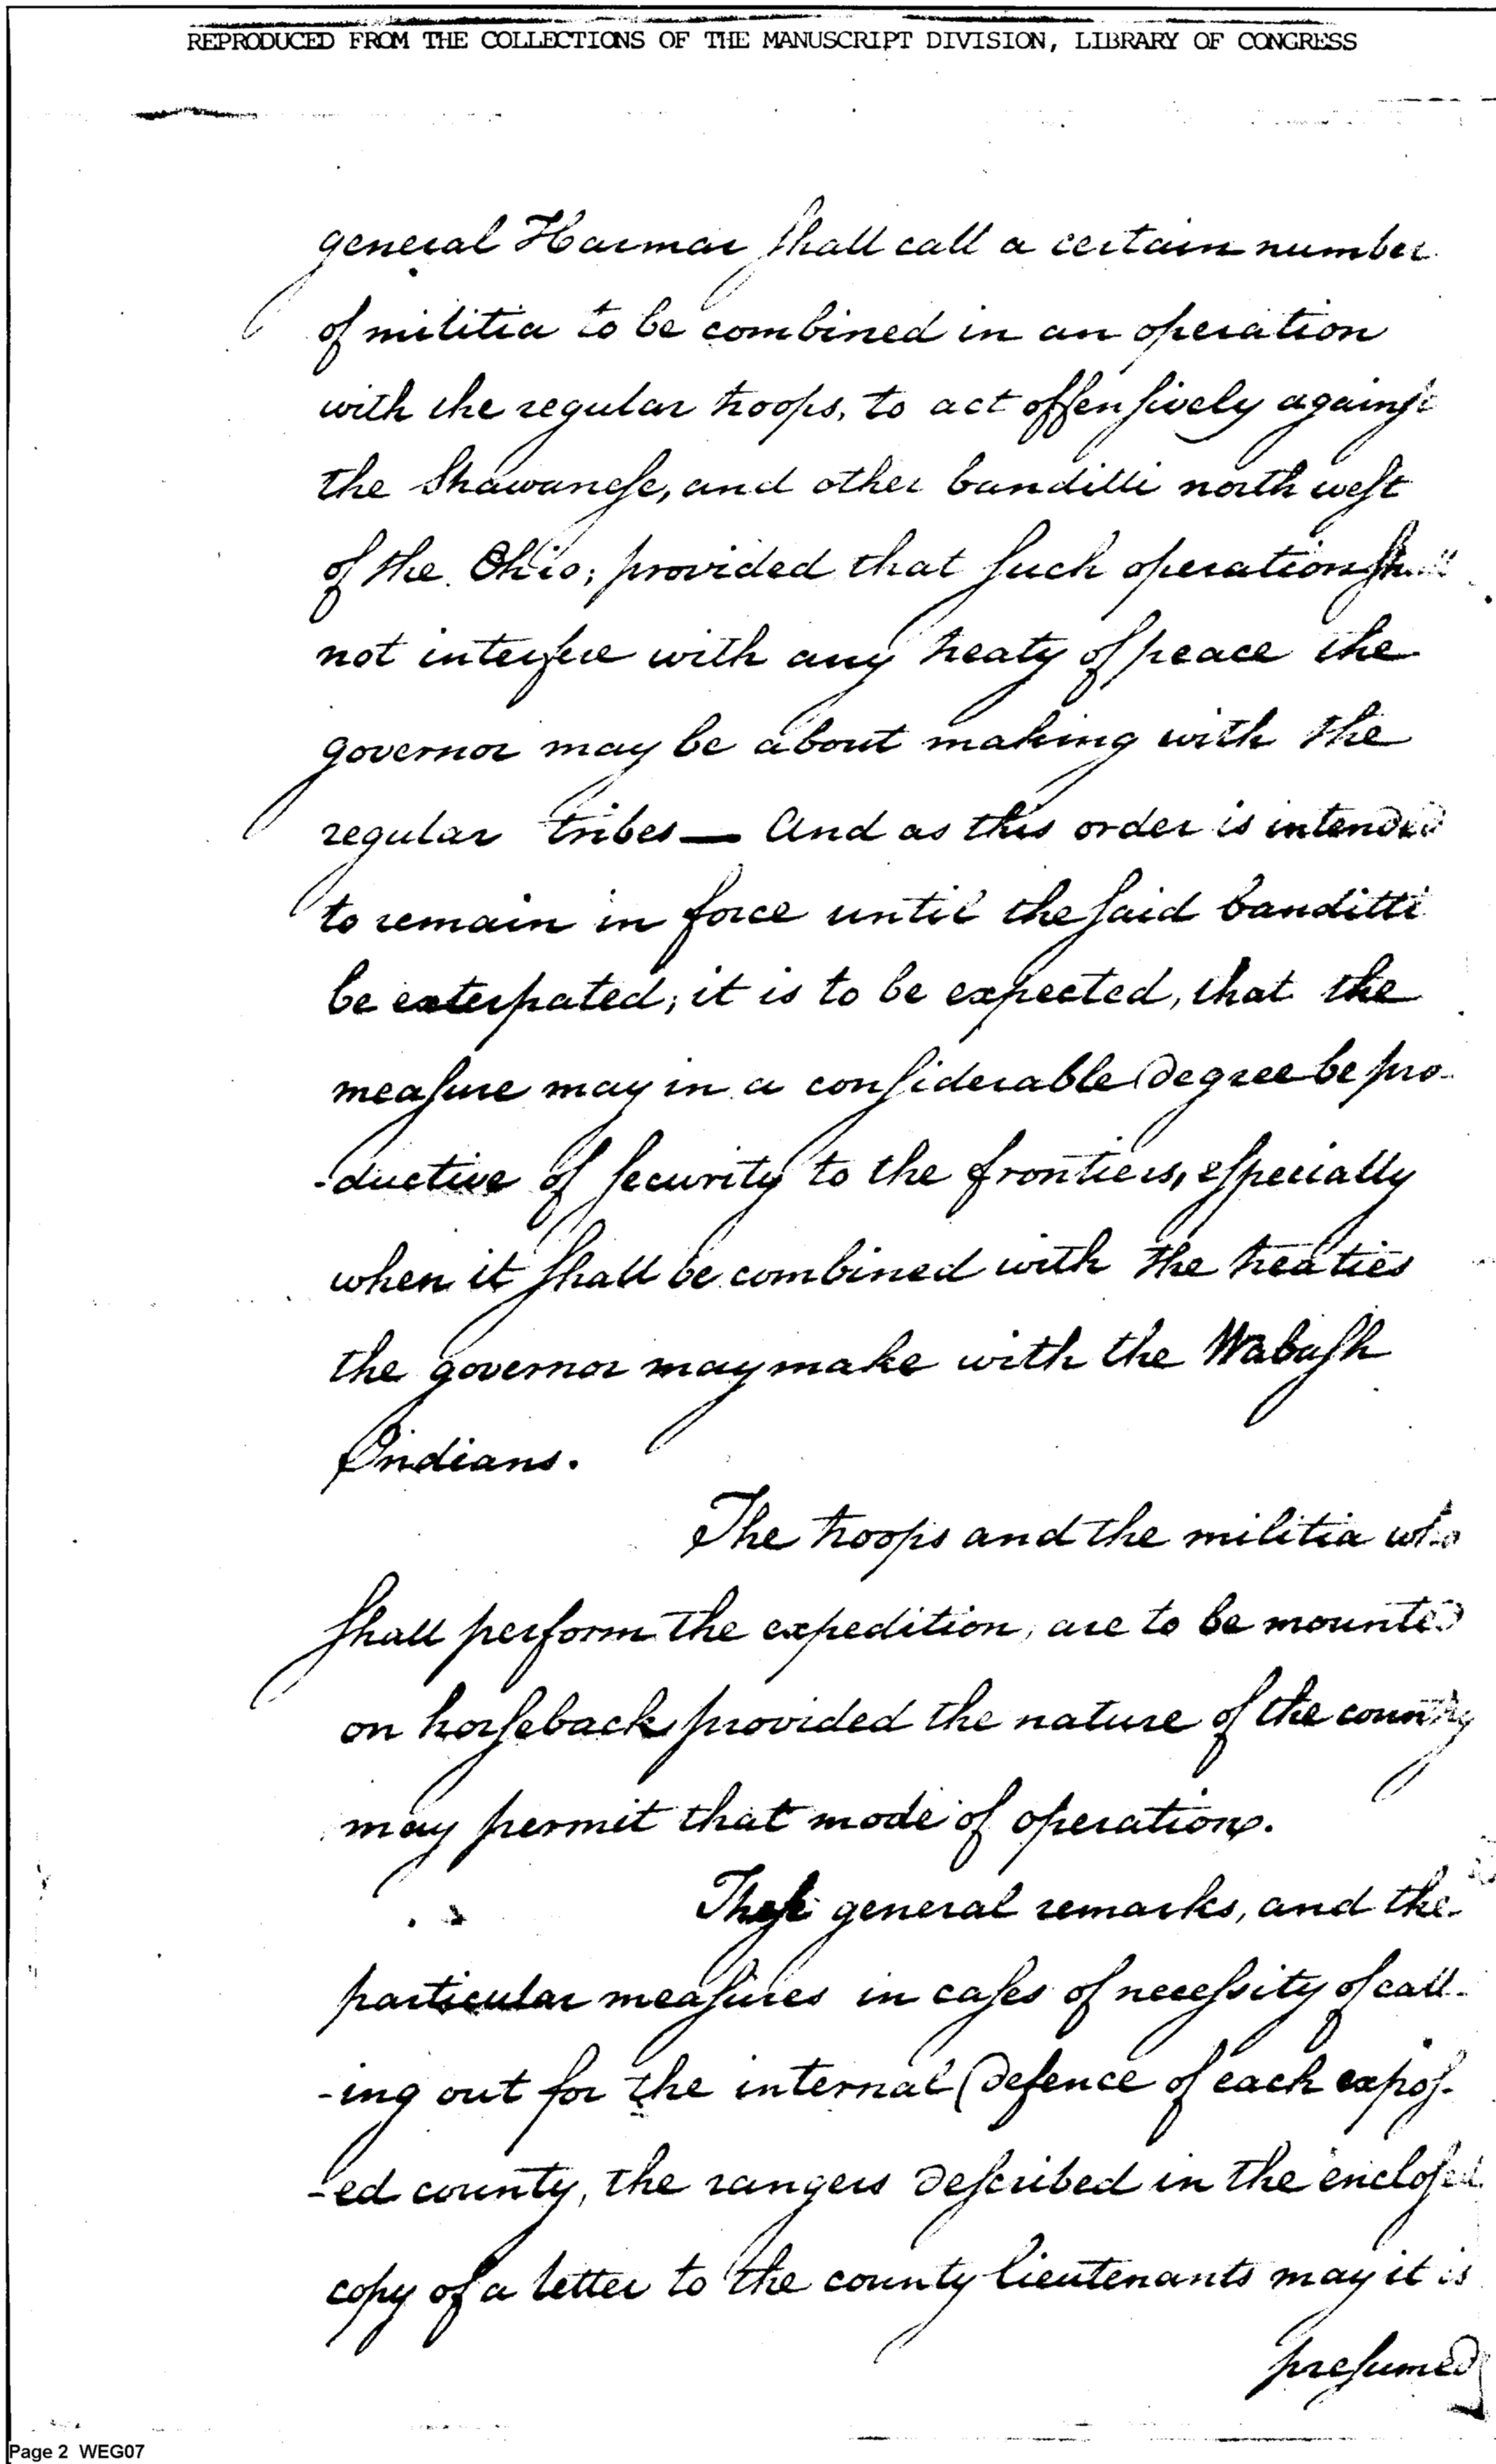 REPRODUCED FROM THE COLLECTIONS OF THE MANUSCRIPT DIVISION, LIBRARY OF CONGRESS
general Harmar shall call a certain number
of militia to be combined in an operation
with the regular troops, to act offensively against
the Shawanese, and other banditti north west
of the Ohio; provided that such operation shall
not interfere with any treaty of peace the
governor may be about making with the
regular tribes — And as this order is intended
to remain in force until the said banditti
be exterpated; it is to be expected, that the
measure may in a considerable degree be pro-
-ductive of security to the frontiers, especially
when it shall be combined with the treaties
the governor may make with the Wabash
Indians.
The troops and the militia who
shall perform the expedition, are to be mounted
on horseback provided the nature of the country
may permit that mode of operation.
These general remarks, and the
particular measures in cases of necessity of call-
-ing out for the internal defence of each expos-
-ed county, the rangers described in the enclosed
copy of a letter to the county lieutenants may it is
presumed
Page 2 WEG07